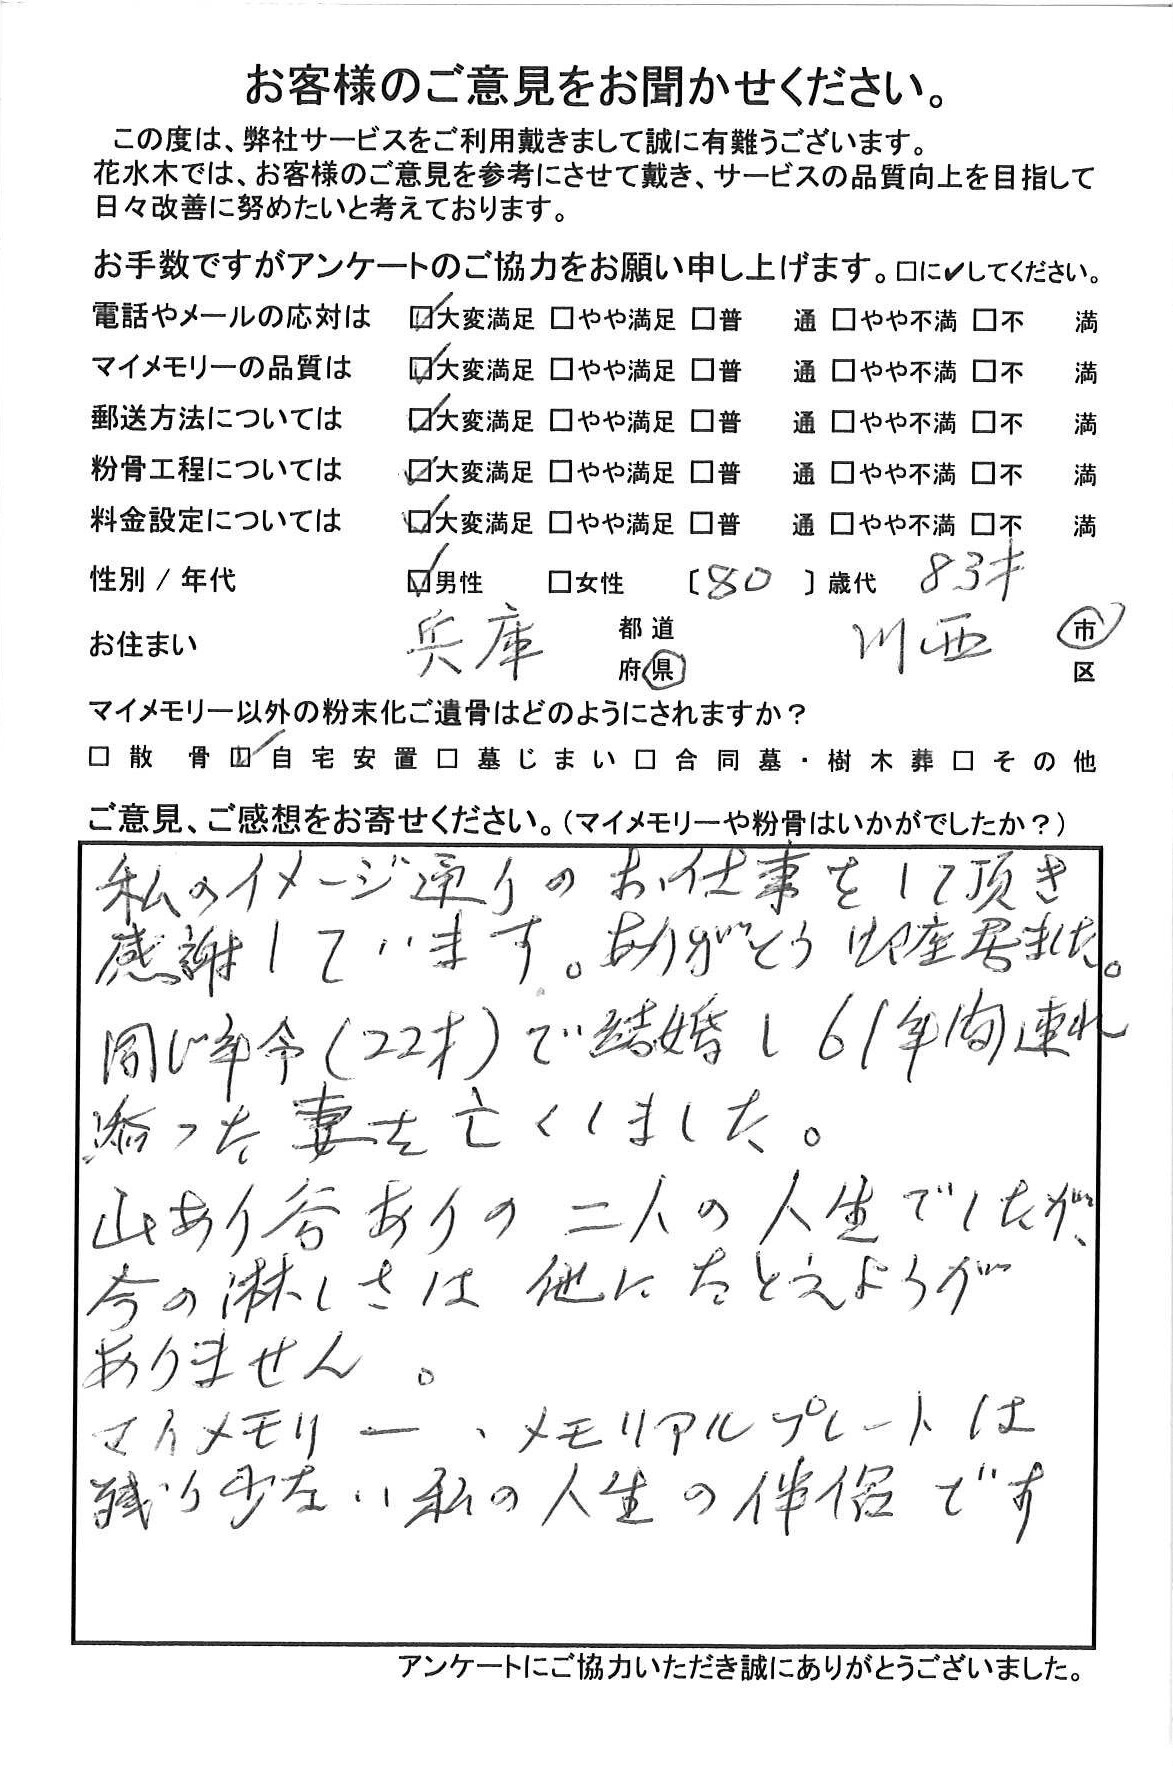 お客様のご意見をお聞かせください。
この度は、弊社サービスをご利用戴きまして誠に有難うございます。
花水木では、お客様のご意見を参考にさせて戴き、サービスの品質向上を目指して
日々改善に努めたいと考えております。
お手数ですがアンケートのご協力をお願い申し上げます。□に✓してください。
電話やメールの応対は ☑大変満足 □やや満足 □普 通 □やや不満 □不 満
マイメモリーの品質は ☑大変満足 □やや満足 □普 通 □やや不満 □不 満
郵送方法については ☑大変満足 □やや満足 □普 通 □やや不満 □不 満
粉骨工程については ☑大変満足 □やや満足 □普 通 □やや不満 □不 満
料金設定については ☑大変満足 □やや満足 □普 通 □やや不満 □不 満
性別 / 年代 ☑男性 □女性 〔80〕歳代 83才
お住まい 兵庫 都道府県 川西 市区
マイメモリー以外の粉末化ご遺骨はどのようにされますか？
□散 骨 ☑自宅安置 □墓じまい □合同墓・樹木葬 □その他
ご意見、ご感想をお寄せください。（マイメモリーや粉骨はいかがでしたか？）
私のイメージ通りのお仕事をして頂き
感謝しています。ありがとう御座居ました。
同じ年令(22才)で結婚し61年間連れ
添った妻を亡くしました。
山あり谷ありの二人の人生でしたが、
今の淋しさは他にたとえようが
ありません。
マイメモリー、メモリアルプレートは
残り少ない私の人生の伴侶です
アンケートにご協力いただき誠にありがとうございました。